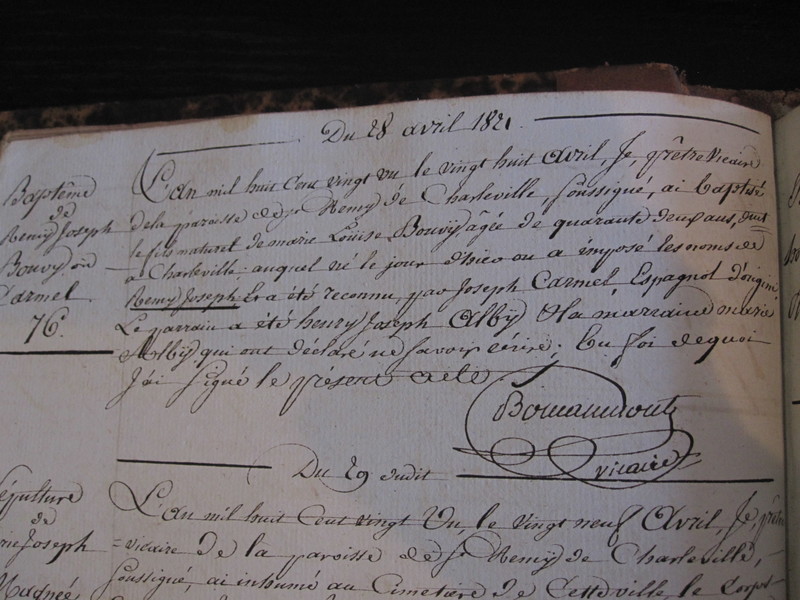 Du 28 avril 1821.
Baptême
de
Remy Joseph
Bouvy ou
Carmel
76.
L'an mil huit Cent vingt un le vingt huit avril, Je, prêtre Vicaire
de la paroisse de St Remy de Charleville, soussigné, ai baptisé
le fils naturel de marie Louise Bouvy âgée de quarante deux ans,
a Charleville: auquel né le jour d'hier on a imposé les noms de
Remy Joseph Et a été reconnu, par Joseph Carmel, Espagnol d'origine
Le parrain a été henry Joseph Alby & la marraine marie
Alby qui ont déclaré ne savoir écrire; En foi de quoi
J'ai signé le présent acte
vicaire
Du 29 dudit
Sépulture
de
Joseph
L'an mil huit Cent vingt Un, le vingt neuf Avril, Je, prêtre
=vicaire de la paroisse de St Remy de Charleville,
soussigné, ai inhumé au Cimetière de Cette ville le Corps